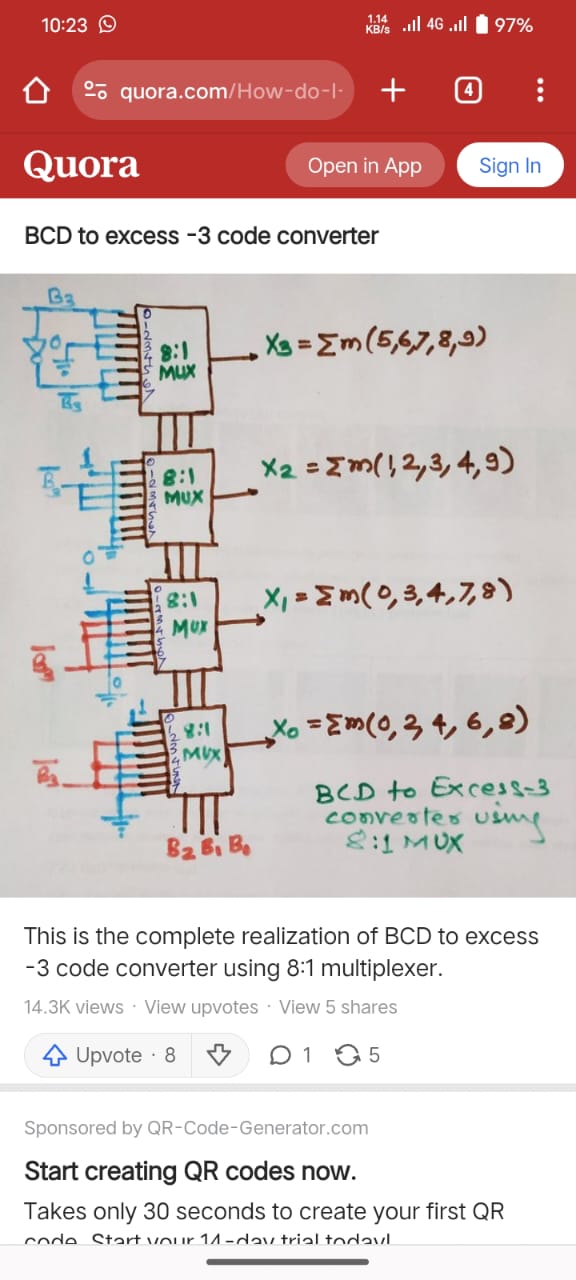 10:23
1.14 KB/s 4G 97%
quora.com/How-do-I-
4
Quora
Open in App
Sign In
BCD to excess -3 code converter
B3
0
0 1 2 3 4 5 6 7
8:1
MUX
X3 = Σm(5,6,7,8,9)
B3
1
0 1 2 3 4 5 6 7
8:1
MUX
X2 = Σm(1,2,3,4,9)
0
1
0 1 2 3 4 5 6 7
8:1
MUX
X1 = Σm(0,3,4,7,8)
0
1
0 1 2 3 4 5 6 7
8:1
MUX
X0 = Σm(0,2,4,6,8)
B2 B1 B0
BCD to Excess-3
converter using
8:1 MUX
This is the complete realization of BCD to excess
-3 code converter using 8:1 multiplexer.
14.3K views · View upvotes · View 5 shares
Upvote · 8
1
5
Sponsored by QR-Code-Generator.com
Start creating QR codes now.
Takes only 30 seconds to create your first QR
code. Start your 14-day trial today!